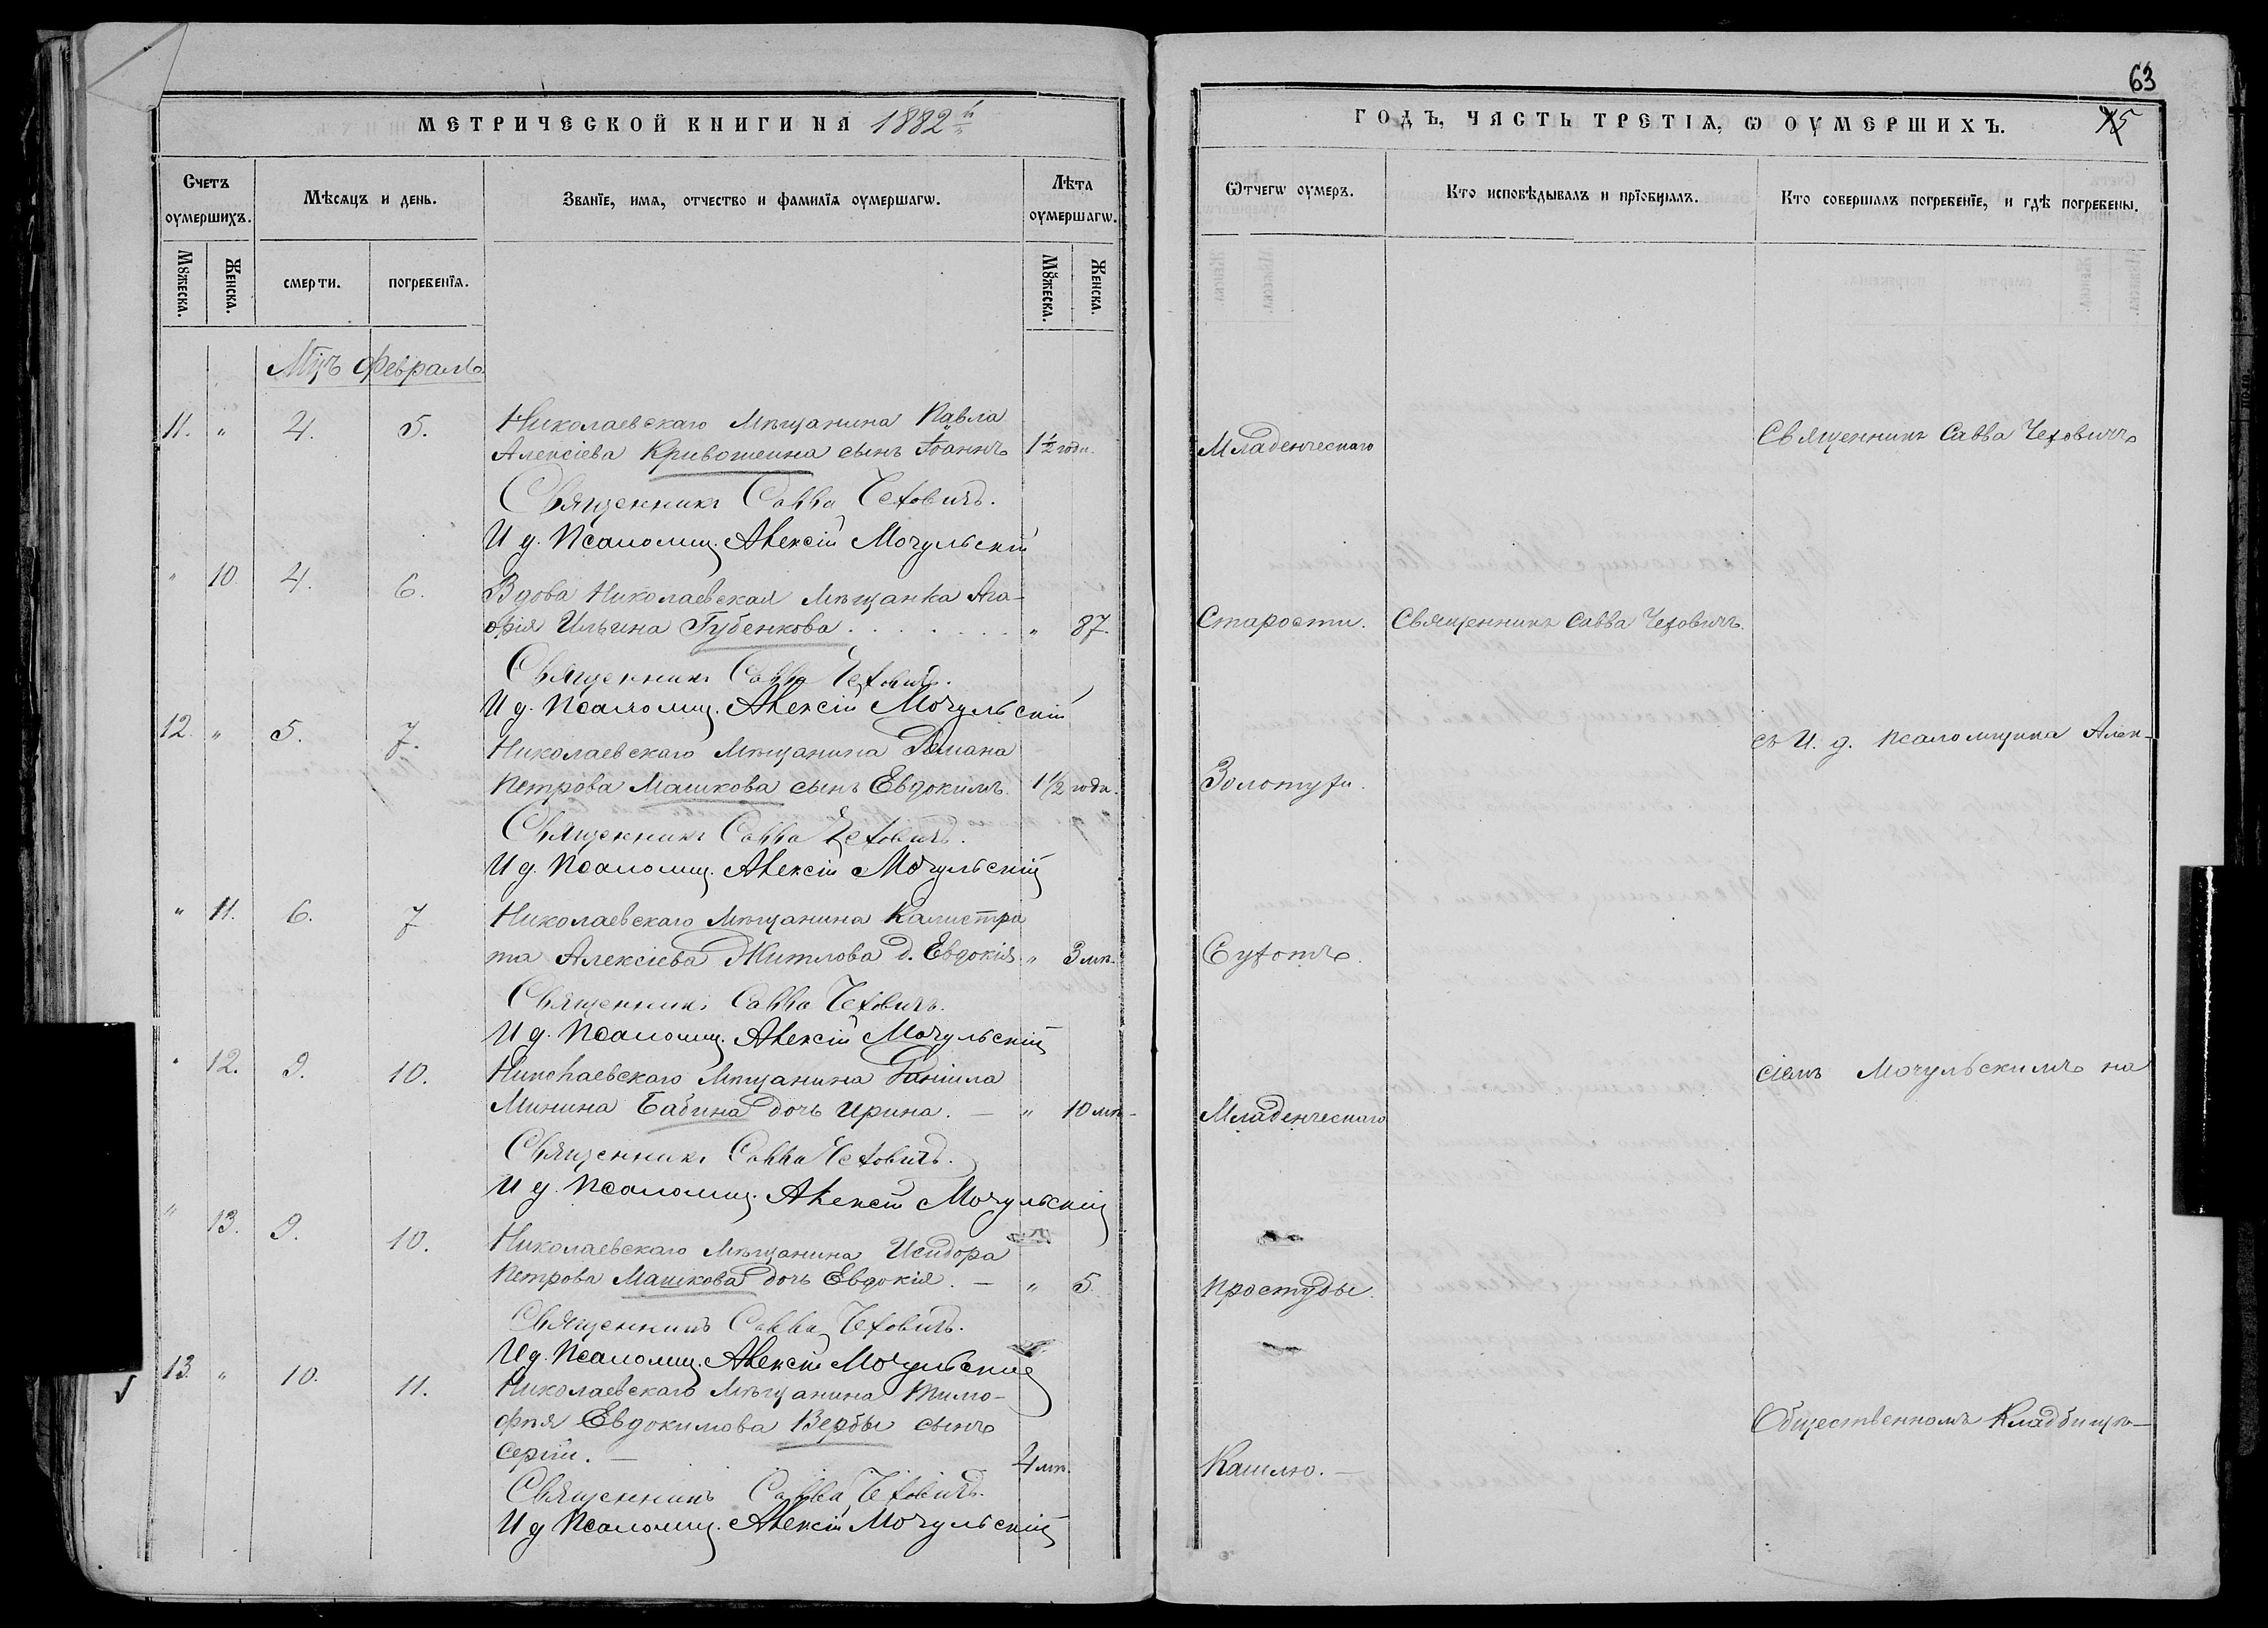 МЕТРИЧЕСКОЙ КНИГИ НА 1882й
Счетъ оумершихъ.
Мѣсяцъ и день.
Званїе, имѧ, отчество и фамилїѧ оумершагѡ.
Лѣта оумершагѡ.
Мꙋжеска.
Женска.
смерти.
погребенїѧ.
Мꙋжеска.
Женска.
Мцъ Февраль
11. " 4. 5. Николаевскаго Мѣщанина Павла
Алексіева Кривошеина сынъ Іоаннъ 1½ года.
Священникъ Савва Чеховичъ.
И д. Псаломщ. Алексій Мочульскій
" 10. 4. 6. Вдова Николаевская Мѣщанка Ага-
фія Ильина Губенкова . . . . . . . " 87.
Священникъ Савва Чеховичъ.
И д. Псаломщ. Алексій Мочульскій
12. " 5. 7. Николаевскаго Мѣщанина Романа
Петрова Машкова сынъ Евдокимъ. 1½ года.
Священникъ Савва Чеховичъ.
И д. Псаломщ. Алексій Мочульскій
" 11. 6. 7 Николаевскаго Мѣщанина Калистра
та Алексіева Житлова д. Евдокія. " 3 мѣ.
Священникъ Савва Чеховичъ.
И д. Псаломщ. Алексій Мочульскій
" 12. 9. 10. Николаевскаго Мѣщанина Даніила
Минина Бабина дочь Ирина. — " 10 мѣ.
Священникъ Савва Чеховичъ.
И д. Псаломщ. Алексій Мочульскій
" 13. 9. 10. Николаевскаго Мѣщанина Исидора
Петрова Машкова дочь Евдокія. — " 5.
Священникъ Савва Чеховичъ.
И д. Псаломщ. Алексій Мочульскій
13. " 10. 11. Николаевскаго Мѣщанина Тимо-
фѣя Евдокимова Вербы сынъ
Сергій. — 4 мѣ.
Священникъ Савва Чеховичъ.
И д Псаломщ. Алексій Мочульскій
63
ГОДЪ, ЧАСТЬ ТРЕТІѦ, Ѡ ОУМЕРШИХЪ.
75
Ѿчегѡ оумеръ.
Кто исповѣдывалъ и прїобщалъ.
Кто совершалъ погребенїе, и гдѣ погребены.
Младенческаго
Священникъ Савва Чеховичъ
Старости. Священникъ Савва Чеховичъ.
съ И. д. Псаломщика Алек-
Золотухи.
Сухотъ.
сіемъ Мочульскимъ на
Младенческаго
Простуды.
Общественномъ Кладбищѣ—
Кашлю. —